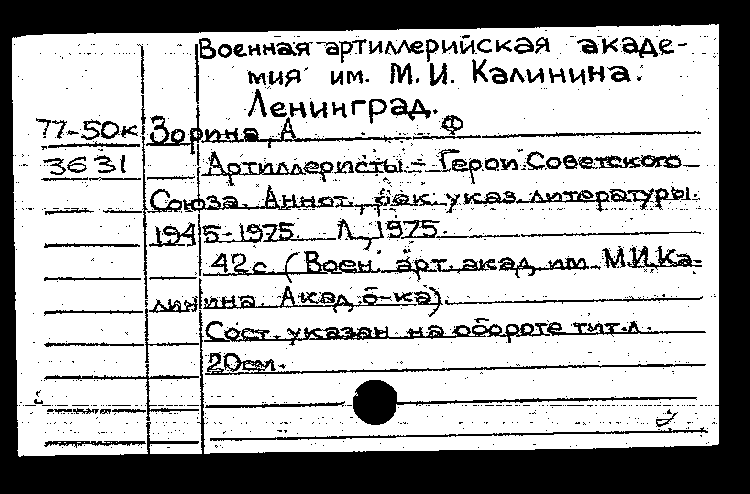 Военная артиллерийская акаде-
мия им. М. И. Калинина.
Ленинград.
77-50к Зорина, А Ф
3631 Артиллеристы - Герои Советского
Союза. Аннот., рек. указ. литературы.
1945-1975. Л., 1975.
42с. (Воен. арт. акад. им. М.И. Ка-
линина. Акад. б-ка).
Сост. указан на обороте тит.л.
20см.